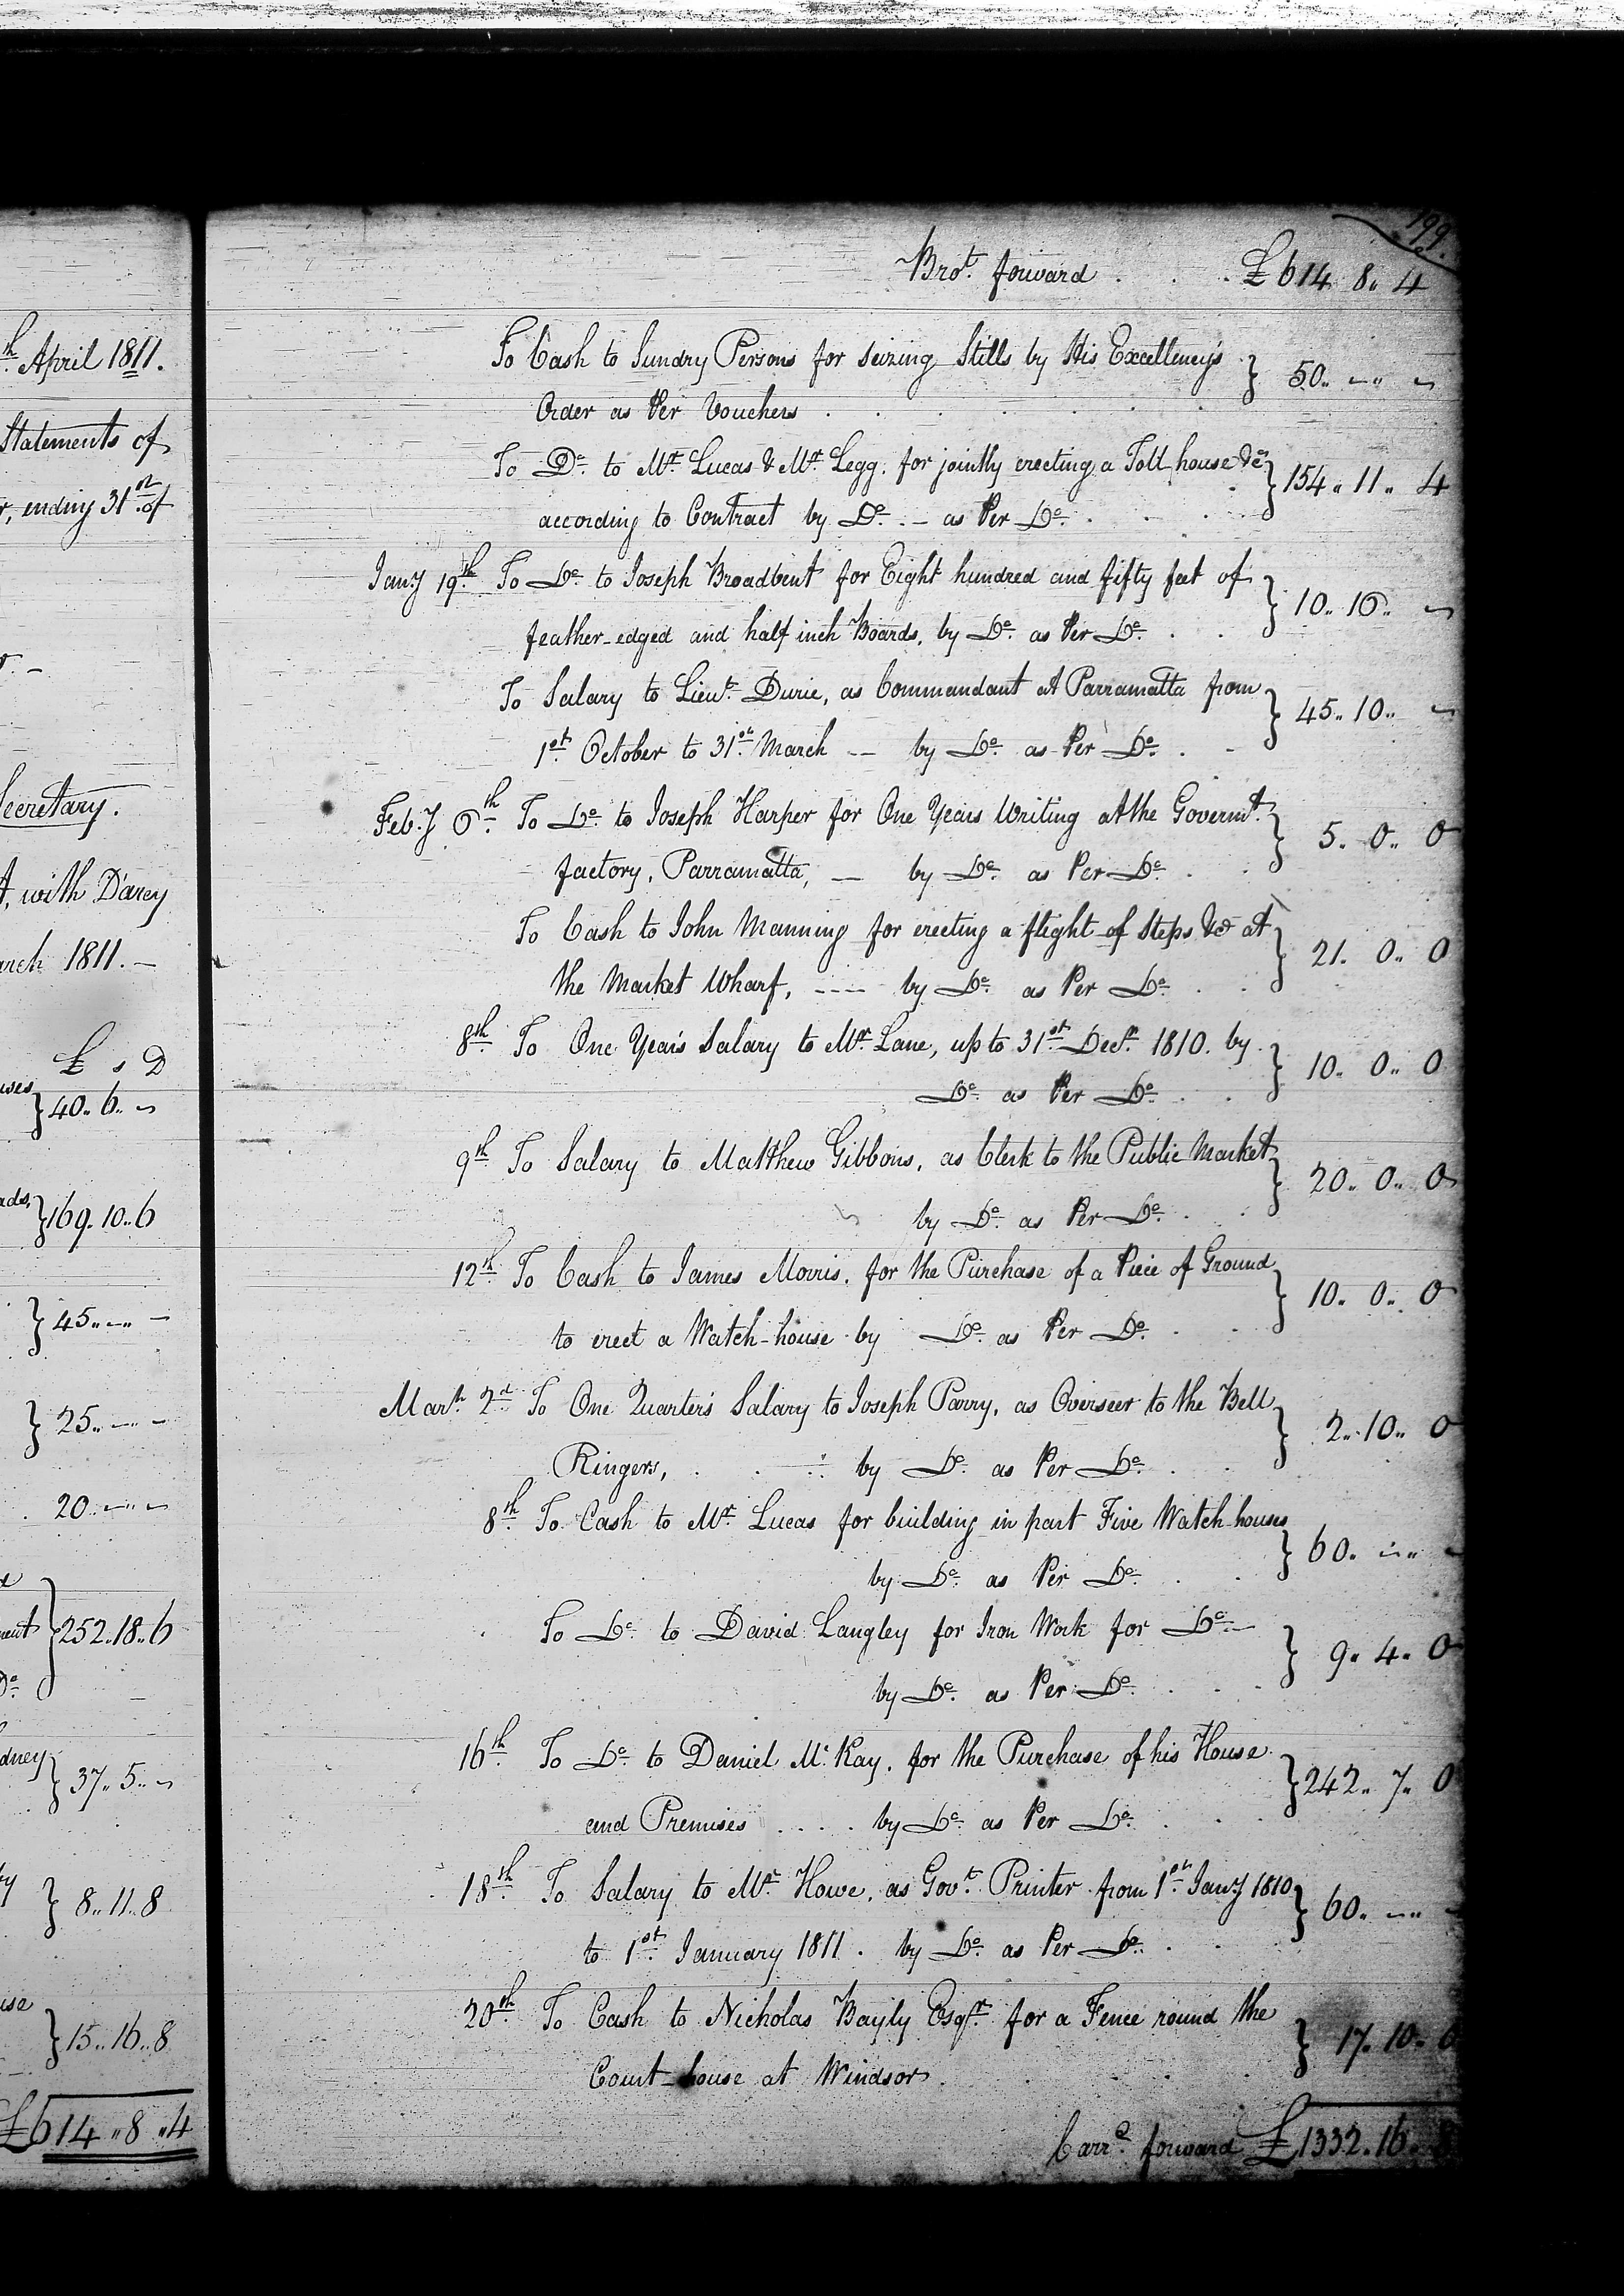 th April 1811.
Statements of
ending 31st of
Secretary.
with D'arcy
1811. —
£ s D
40.. 6.. ~
169.. 10.. 6
45.. ~.. ~
25.. ~ ~
20.. ~.. ~
252.. 18.. 6
Do
37.. 5.. ~
8.. 11.. 8
15.. 16.. 8
£614.. 8.. 4
199.
Brot. forward . . . £614. 8.. 4
To Cash to Sundry Persons for seizing Stills by His Excellency's
Order as Per Vouchers . . . 50.. ~.. ~
To Do. to Mr. Lucas & Mr. Legg. for jointly erecting a Toll house &c
according to Contract by Do. — as Per Do. . . 154.. 11.. 4
Jany 19th. To Do. to Joseph Broadbent for Eight hundred and fifty feet of
feather-edged and half inch Boards, by Do. as Per Do. . . 10.. 16.. ~
To Salary to Lieut. Durie, as Commandant at Parramatta from
1st. October to 31st. March — by Do. as Per Do. . - 45.. 10.. ~
Feb.y 6th. To Do. to Joseph Harper for One Years Writing at the Governmt.
factory, Parramatta, — by Do. as Per Do. . . 5.. 0.. 0
To Cash to John Manning for erecting a flight of Steps &c at
the Market Wharf, ---- by Do. as Per Do. . . 21. 0.. 0
8th. To One Year's Salary to Mr. Lane, up to 31st. Decr. 1810. by
Do. as Per Do. . . 10.. 0.. 0
9th. To Salary to Matthew Gibbons, as Clerk to the Public Market
by Do. as Per Do. . . 20.. 0.. 0
12th. To Cash to James Morris, for the Purchase of a Piece of Ground
to erect a Watch-house by Do. as Per Do. . . 10.. 0.. 0
Marh. 2d. To One Quarter's Salary to Joseph Parry, as Overseer to the Bell
Ringers, . . . by Do. as Per Do. . . 2.. 10.. 0
8th. To Cash to Mr. Lucas for building in part Five Watch-houses
by Do. as Per Do. . . 60.. ~..
To Do. to David Langley for Iron Work for Do. —
by Do. as Per Do. . . 9.. 4.. 0
16th. To Do. to Daniel Mc.Kay, for the Purchase of his House
and Premises . . . . by Do. as Per Do. . . 242.. 7.. 0
18th. To Salary to Mr. Howe, as Govt. Printer from 1st. Jany 1810
to 1st. January 1811. by Do. as Per Do. . . 60.. ~..
20th. To Cash to Nicholas Bayly Esqr. for a Fence round the
Court-house at Windsor . . . 17.. 10.. 6
Carrd. forward £1332.. 16..